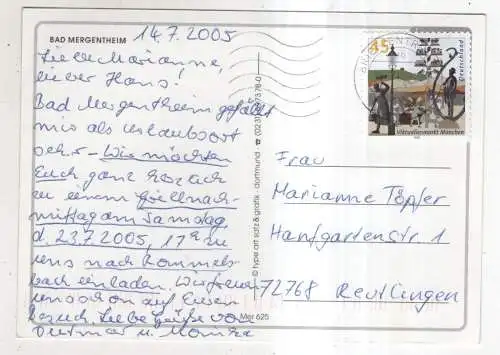 BAD MERGENTHEIM
14.7.2005
Liebe Marianne,
lieber Hans!
Bad Mergentheim gefällt
mir als Urlaubsort
sehr – Wir möchten
Euch ganz herzlich
zu einem Grillnach-
mittag am Samstag
d. 23.7.2005, 17h zu
uns nach Rommels-
bach einladen. Wir freuen
uns schon auf Euren
Besuch. Liebe Grüße von
Dietmar u. Monika
© type art satz & grafik · dortmund
Mer 625
45
Deutschland
Viktualienmarkt München
Frau
Marianne Töpfer
Hanfgartenstr. 1
72768 Reutlingen